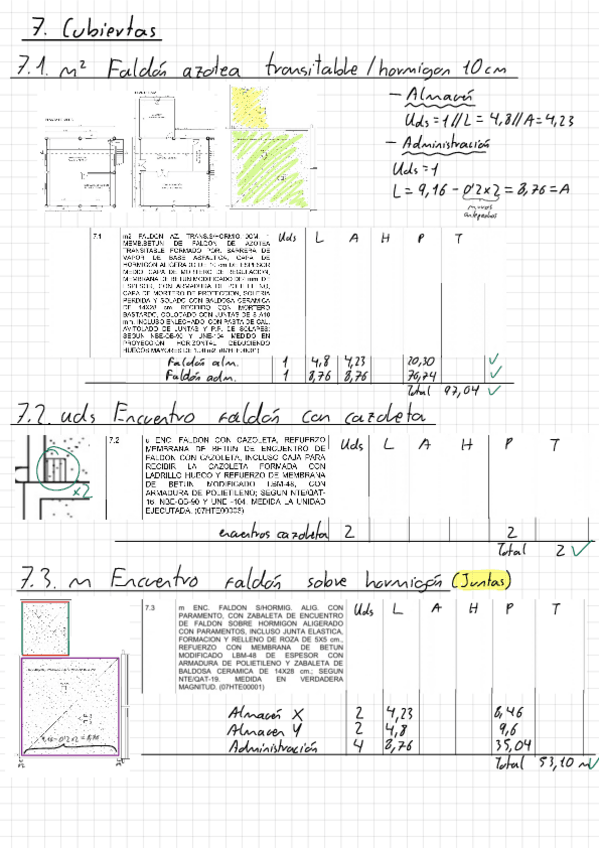 7. Cubiertas
7.1. m² Faldón azotea transitable/hormigón 10cm
- Almacén
Uds = 1 // L = 4,8 // A = 4,23
- Administración
Uds = 1
L = 9,16 - 0'2x2 = 8,76 = A
muros
7.1 m2 FALDON AZ. Uds L A H P T
DE FALDON DE AZOTEA
TRANSITABLE FORMADO POR: BARRERA DE
VAPOR DE BASE ASFALTICA, CAPA DE
MEDIO, CAPA DE MORTERO DE REGULACION,
CAPA DE MORTERO DE PROTECCION, SOLERIA
PERDIDA Y SOLADO CON BALDOSA CERAMICA
DE 14X28 cm RECIBIDO CON MORTERO
BASTARDO, COLOCADO CON JUNTAS DE
INCLUSO ENLECHADO CON PASTA DE CAL,
AVITOLADO DE JUNTAS Y P.P. DE SOLAPES;
MEDIDO EN
PROYECCION HORIZONTAL DEDUCIENDO
HUECOS MAYORES DE
Faldón alm. 1 4,8 4,23 20,30 ✓
Faldón adm. 1 8,76 8,76 76,74 ✓
Total 97,04 ✓
7.2. uds Encuentro faldón con cazoleta
x2
7.2 u ENC. FALDON CON CAZOLETA, REFUERZO Uds L A H P T
MEMBRANA DE BETUN DE ENCUENTRO DE
FALDON CON CAZOLETA, INCLUSO CAJA PARA
RECIBIR LA CAZOLETA FORMADA CON
LADRILLO HUECO Y REFUERZO DE MEMBRANA
DE BETUN MODIFICADO LBM-48, CON
ARMADURA DE POLIETILENO; SEGUN NTE/QAT-
MEDIDA LA UNIDAD
EJECUTADA.
encuentros cazoleta 2 2
Total 2 ✓
7.3. m Encuentro faldón sobre hormigón (Juntas)
7.3 m ENC. FALDON S/HORMIG. ALIG. CON Uds L A H P T
PARAMENTO, CON ZABALETA DE ENCUENTRO
DE FALDON SOBRE HORMIGON ALIGERADO
CON PARAMENTOS, INCLUSO JUNTA ELASTICA,
FORMACION Y RELLENO DE ROZA DE 5X5 cm.,
REFUERZO CON MEMBRANA DE BETUN
MODIFICADO LBM-48 DE ESPESOR CON
ARMADURA DE POLIETILENO Y ZABALETA DE
BALDOSA CERAMICA DE 14X28 cm.; SEGUN
NTE/QAT-19. MEDIDA EN VERDADERA
MAGNITUD. (07HTE00001)
Almacén X 2 4,23 8,46
Almacen Y 2 4,8 9,6
Administración 4 8,76 35,04
9,16-0'2x2=8,76
Total 53,10 m ✓